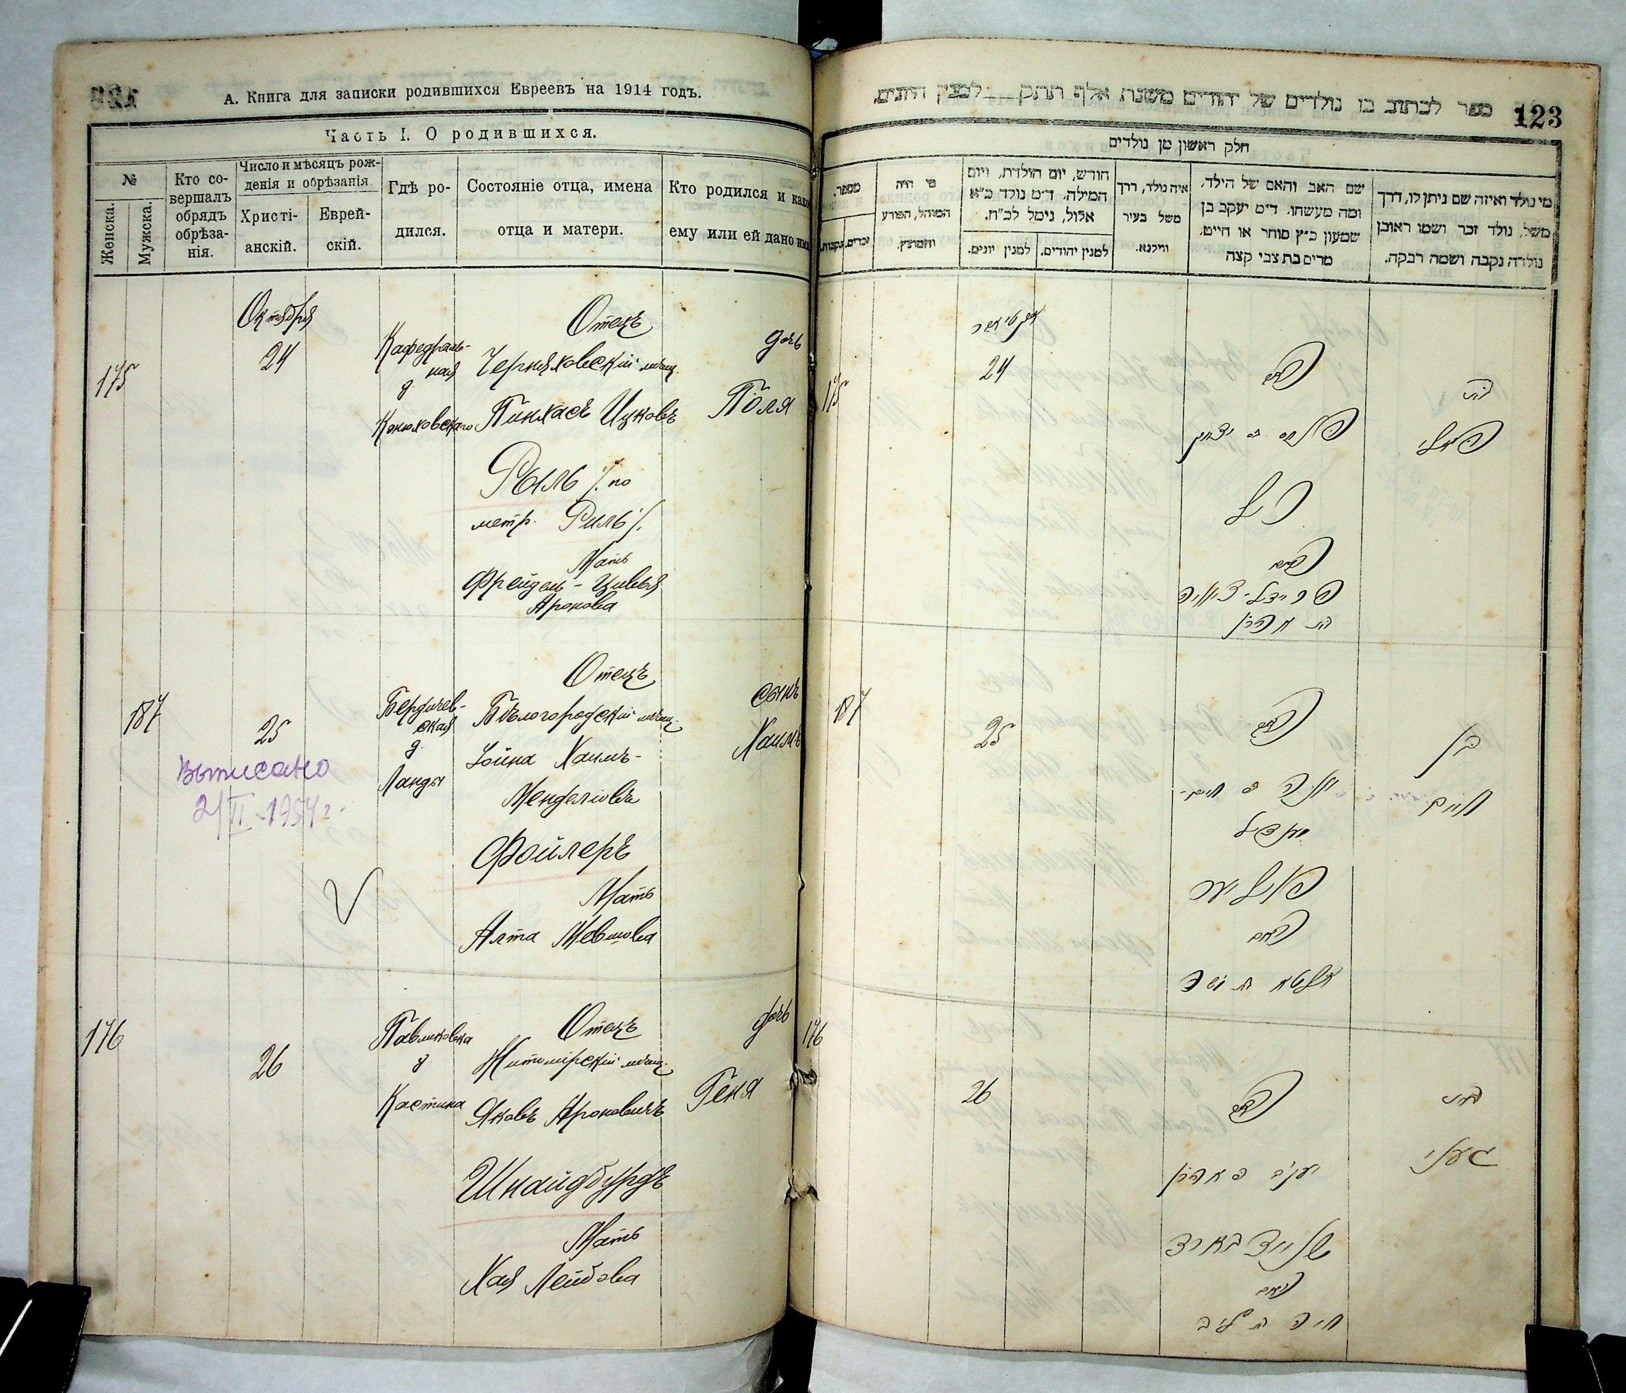 А. Книга для записки родившихся Евреевъ на 1914 годъ.
Часть I. О родившихся.
№
Женска.
Мужска.
Кто со-
вершалъ
обрядъ
обрѣза-
нія.
Число и мѣсяцъ рож-
денія и обрѣзанія
Христі-
анскій.
Еврей-
скій.
Гдѣ ро-
дился.
Состояніе отца, имена
отца и матери.
Кто родился и како
ему или ей дано имя
175
Октября
24
Кафедраль-
ная
д
Конюховскаго
Отецъ
Черняховскій мѣщ.
Пинхасъ Ицковъ
Рыль /. по
метр. Риль /.
Мать
Фрейдель-Цивья
Аронова
дочь
Поля
187
25
Выписано
2/II-1954 г.
Бердичев-
ская
д.
Ланды
Отецъ
Бѣлогородскій мѣщ.
Іойна Хаимъ-
Менделіовъ
Фойлеръ
Мать
Алта Мевшова
сынъ
Хаимъ
176
26
Павликовка
д
Костина
Отецъ
Житомірскій мѣщ.
Яковъ Ароновичъ
Шнайдбурдъ
Мать
Хая Лейбова
дочь
Геня
ספר לכתוב בו נולדים של יהודים משנת אלף תתק למנין היונים.
123
חלק ראשון מן נולדים
מספר.
זכרים.
נקבות.
מי היה
המוהל, הפורע
והמוצץ.
חודש, יום הולדת, ויום
המילה. ד״מ נולד כ״א
אלול, נימל לכ״ח.
למנין יונים.
למנין יהודים.
איה נולד, דרך
משל בעיר
ווילנא.
שם האב והאם של הילד,
ומה מעשהו. ד״מ יעקב בן
שמעון כ״ץ סוחר או חייט.
מרים בת צבי קצה
מי נולד ואיזה שם ניתן לו, דרך
משל, נולד זכר ושמו ראובן
נולדה נקבה ושמה רבקה.
175
24
האב
פנחס ב יצחק
ריל
האם
פריידל-צוויה
בת אהרן
בת
פאלי
187
25
האב
יונה ב חיים-
מענדיל
פוילער
האם
אלטא בת
בן
חיים
176
26
האב
יעקב ב אהרן
שניידבארד
האם
חיה בת ליב
בת
געני